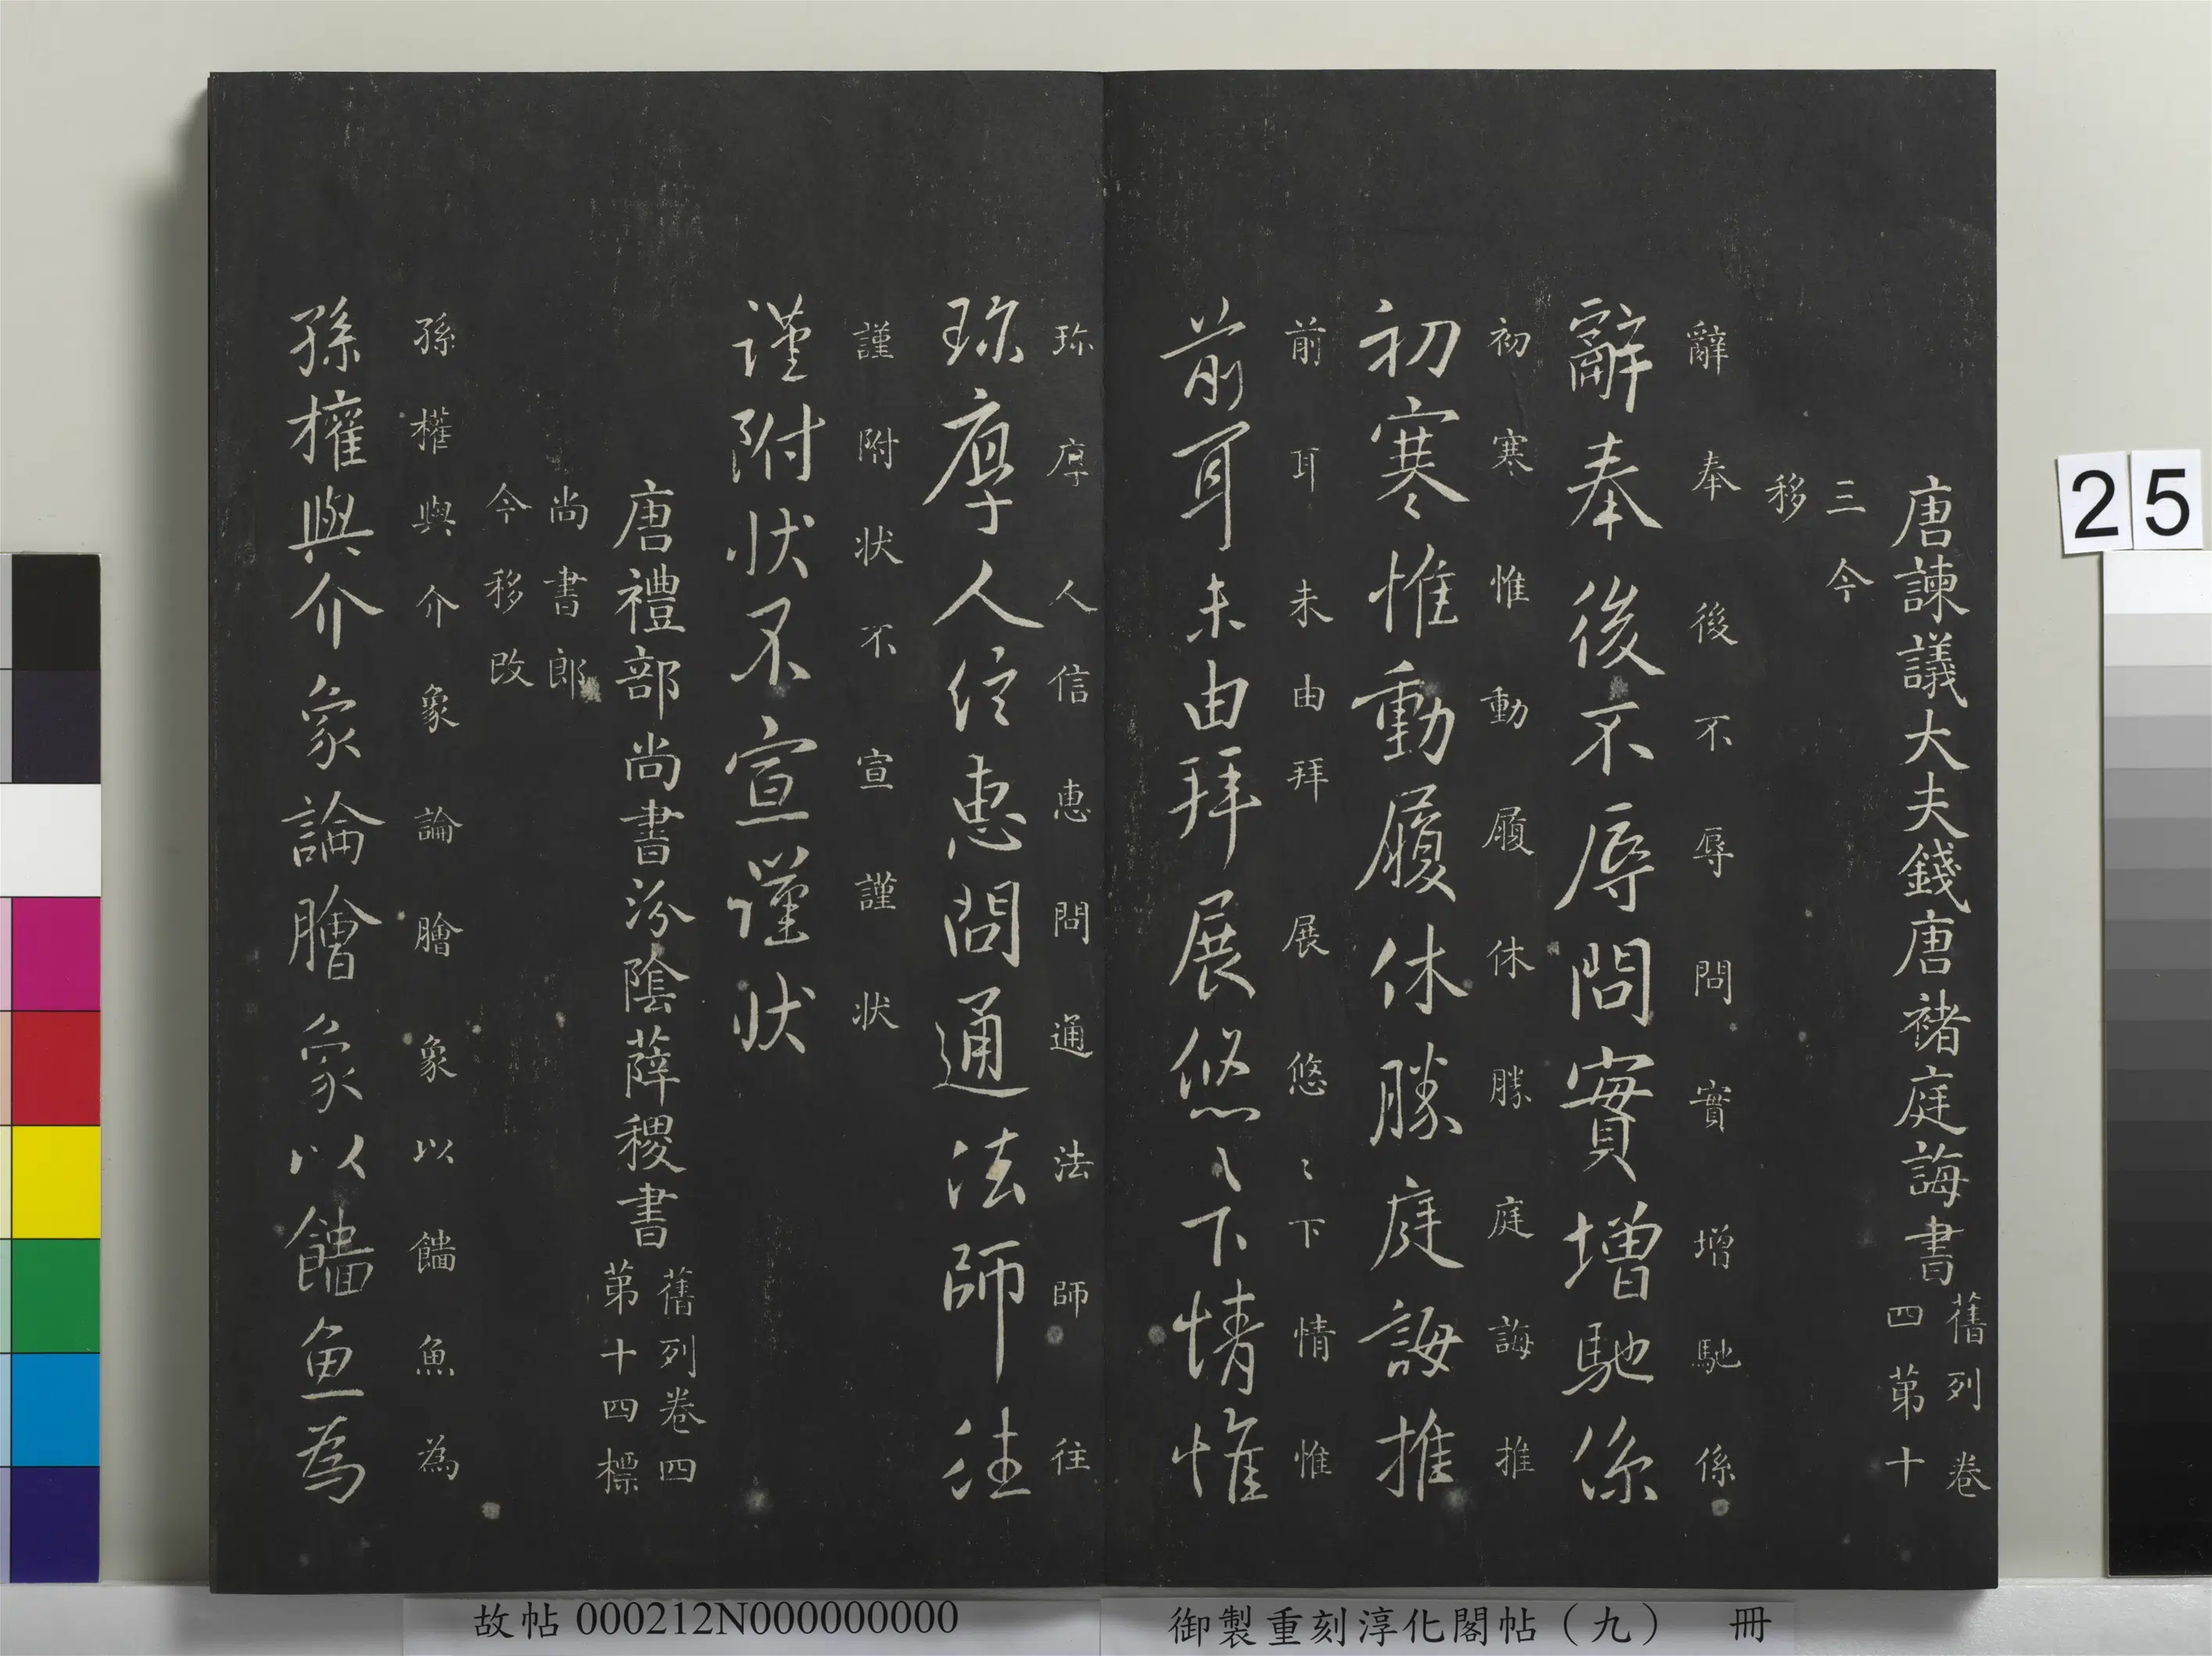 唐諫議大夫錢唐褚庭誨書
舊列卷
四第十
三今
移
辭奉後不辱問實增馳係
辭奉後不辱問實增馳係
初寒惟動履休勝庭誨推
初寒惟動履休勝庭誨推
前耳未由拜展悠〻下情惟
前耳未由拜展悠〻下情惟
珎厚人信惠問通法師往
珎厚人信惠問通法師往
謹附状不宣謹状
謹附状不宣謹状
唐禮部尚書汾陰薛稷書
舊列卷四
第十四標
尚書郎
今移改
孫權與介象論膾象以饍魚為
孫權與介象論膾象以饍魚為
25
故帖000212N000000000
御製重刻淳化閣帖（九） 冊